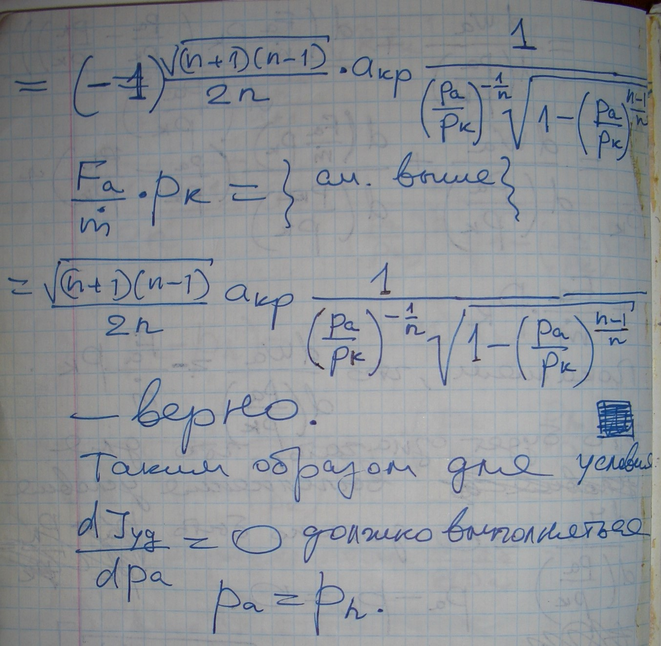 = (-1) √(n+1)(n-1) / 2n · aкр 1 / (pa/pк)^(-1/n) √(1-(pa/pк)^((n-1)/n))
Fa/ṁ · pк = } см. выше }
= √(n+1)(n-1) / 2n aкр 1 / (pa/pк)^(-1/n) √(1-(pa/pк)^((n-1)/n))
– верно.
Таким образом для условия
dJуд/dpa = 0 должно выполняться
pa = ph.